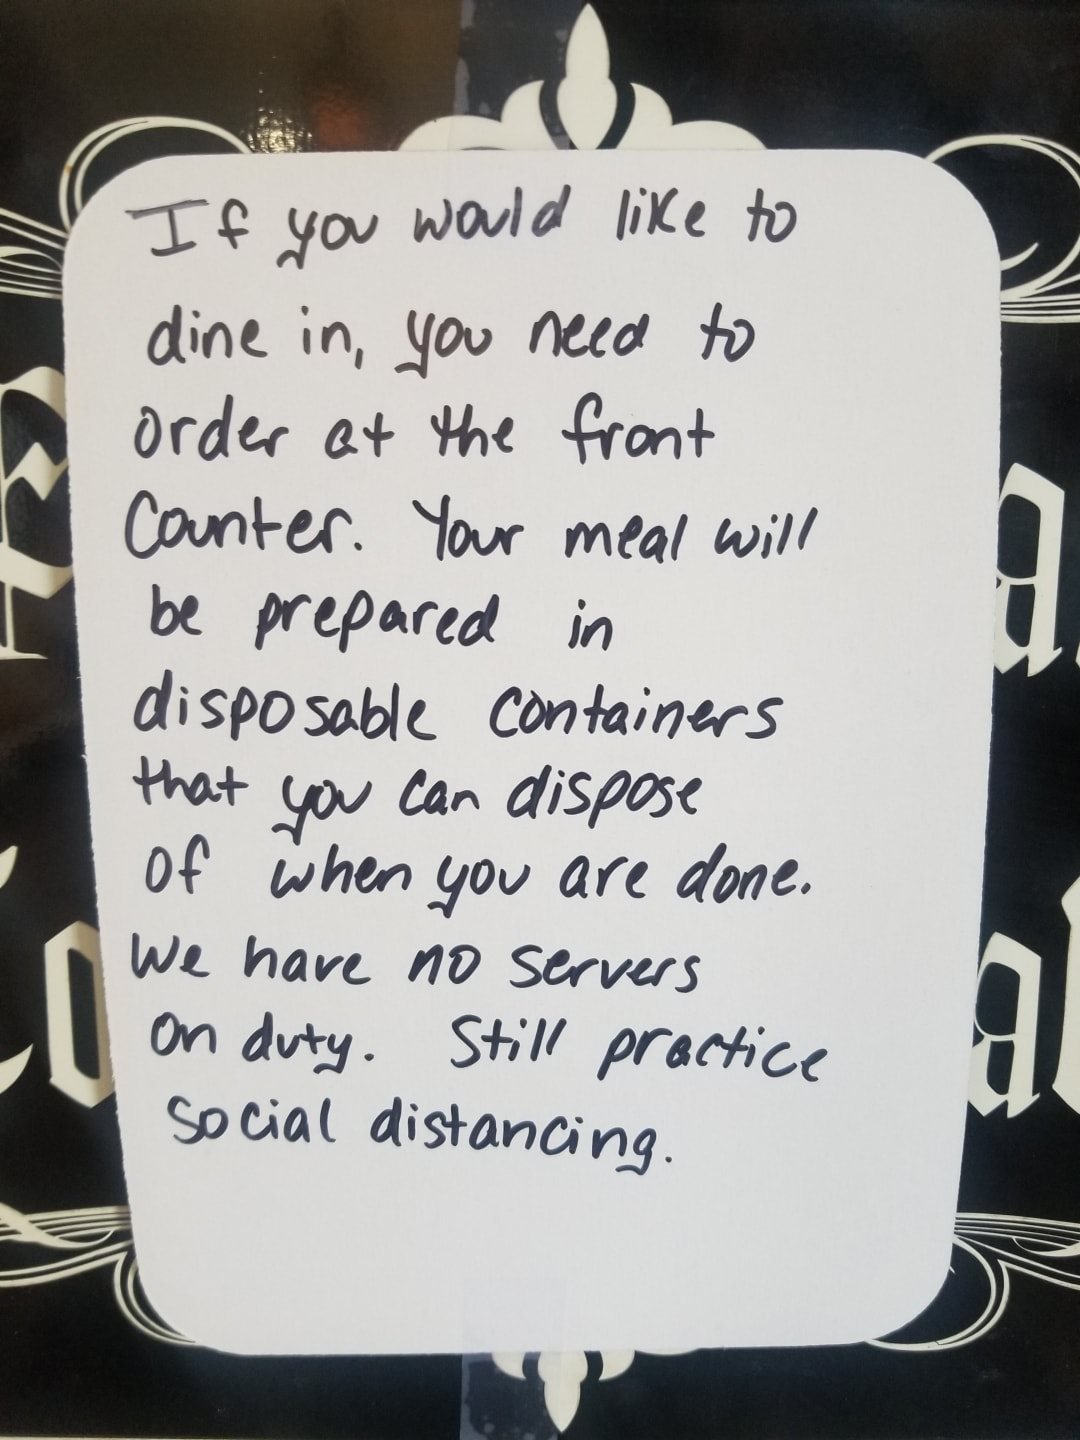 If you would like to
dine in, you need to
order at the front
Counter. Your meal will
be prepared in
disposable containers
that you can dispose
of when you are done.
We have no servers
on duty. Still practice
social distancing.